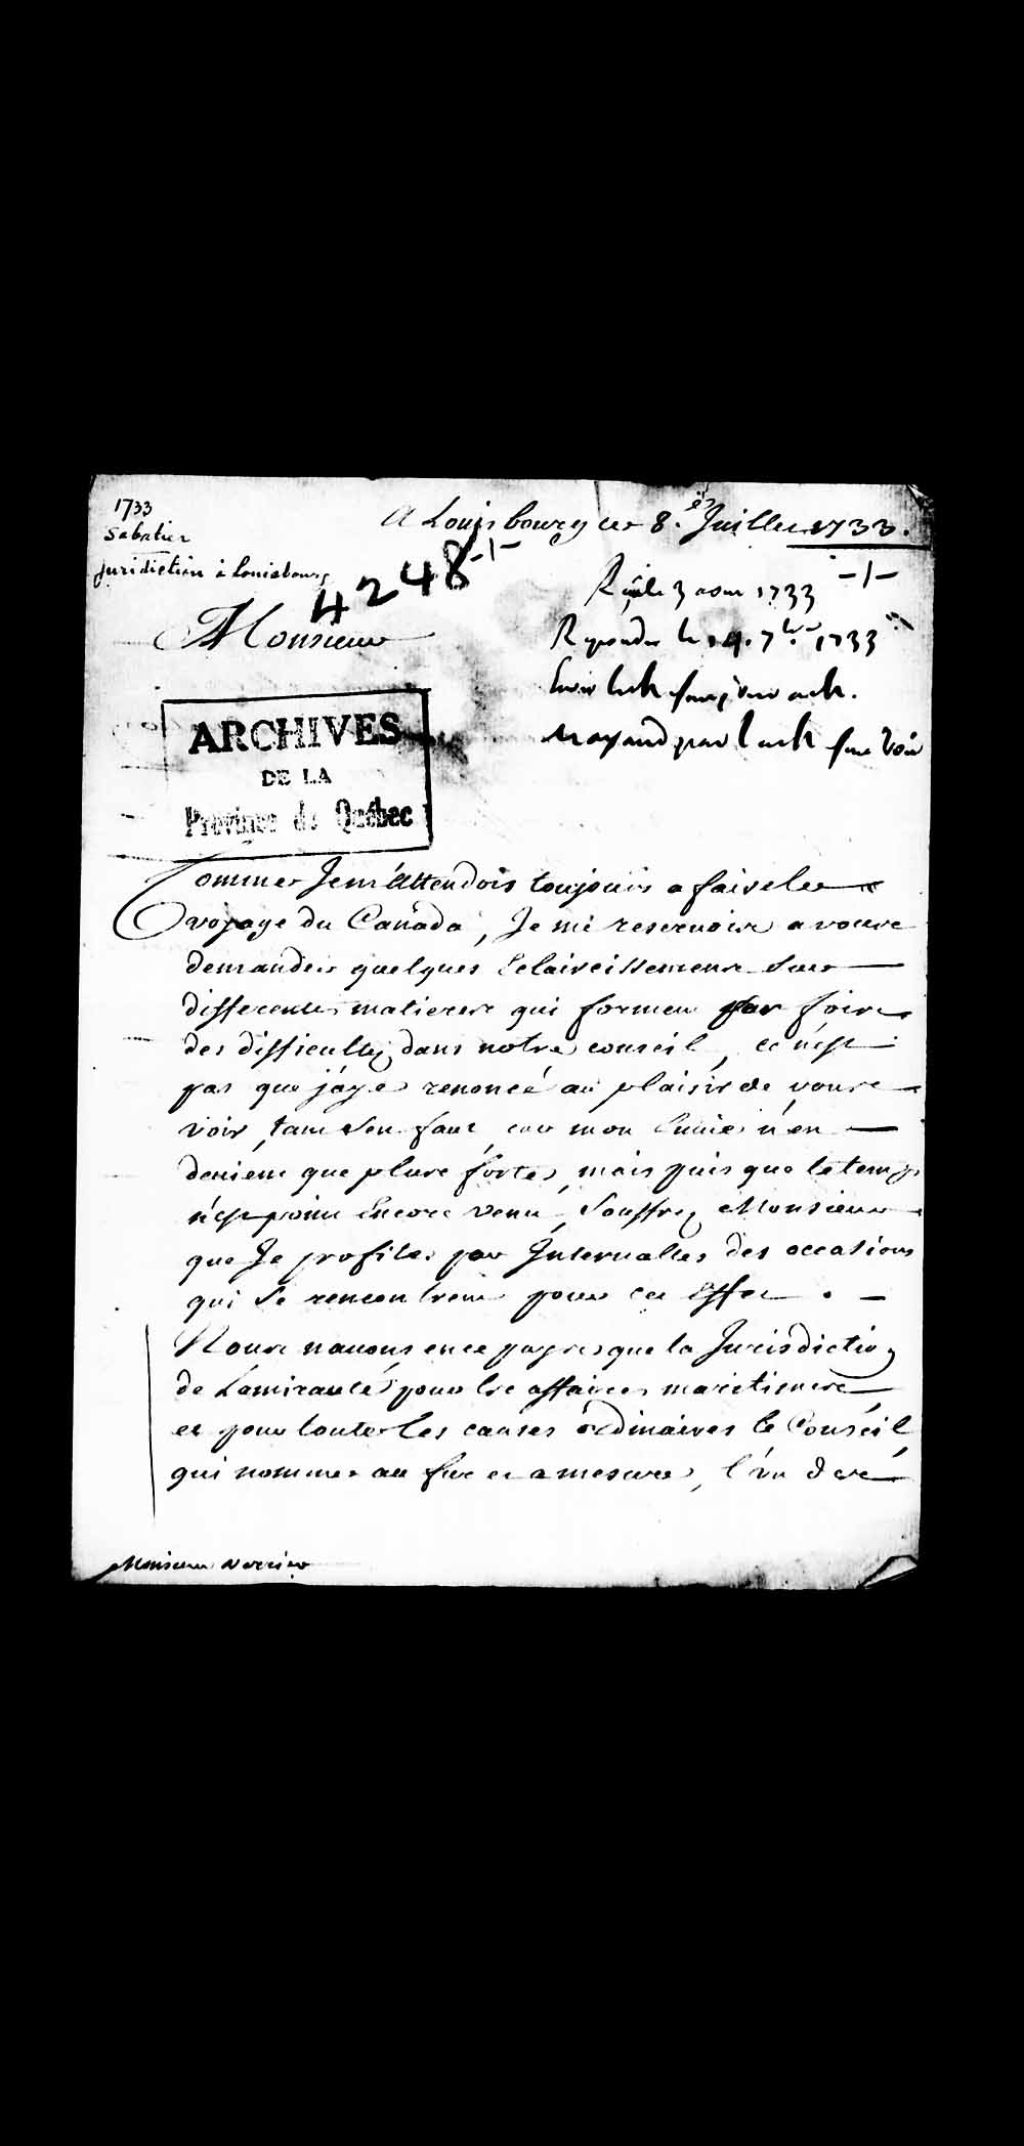 1733
Sabatier
Juridiction à Louisbourg
A Louisbourg ce 8.e Juillet 1733.
4248
-/-
-/-
Monsieur
le 3 aoust 1733
Repondu le 14. 7bre 1733
ARCHIVES
DE LA
Province de Québec
Comme Je m'attendois toujours a faire le
voyage du Canada, Je me reservois a vous
demander quelques Eclaircissemens sur
differentes matieres qui forment par fois
des difficultez dans notre conseil, ce n'est
pas que j'aye renoncé au plaisir de vous
voir, tant s'en faut, car mon Envie n'en
devient que plus forte, mais puis que le temps
n'est point Encore venu, Souffrez Monsieur
que Je profite par Intervalles des occasions
qui Se rencontrent pour cet Effet. -
Nous n'avons en ce pays que la Jurisdiction
de Lamirauté pour les affaires maritimes
et pour toutes les causes ordinaires le Conseil
qui nomme au fur et a mesure, l'un de
Monsieur Verrier